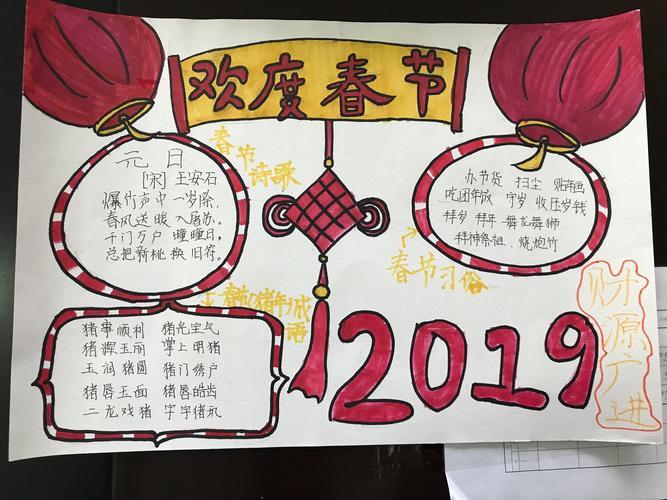 欢度春节
元日
[宋] 王安石
爆竹声中一岁除,
春风送暖入屠苏。
千门万户曈曈日,
总把新桃换旧符。
春节
诗歌
办节货 扫尘 贴年画
吃团年饭 守岁 收压岁钱
拜岁 拜年 舞龙舞狮
拜神祭祖、烧炮竹
春节习俗
春节(猪年)成
语
猪事顺利 猪光宝气
猪辉玉丽 掌上明猪
玉润猪圆 猪门绣户
猪唇玉面 猪唇皓齿
二龙戏猪 字字猪玑
2019
财源广进